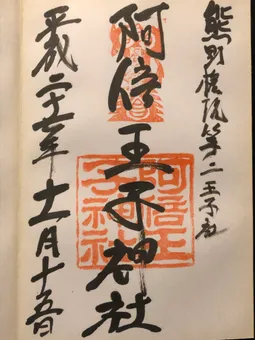 熊野第二王子社
阿倍王子神社
平成二十七年十一月十五日
阿倍王
子神社